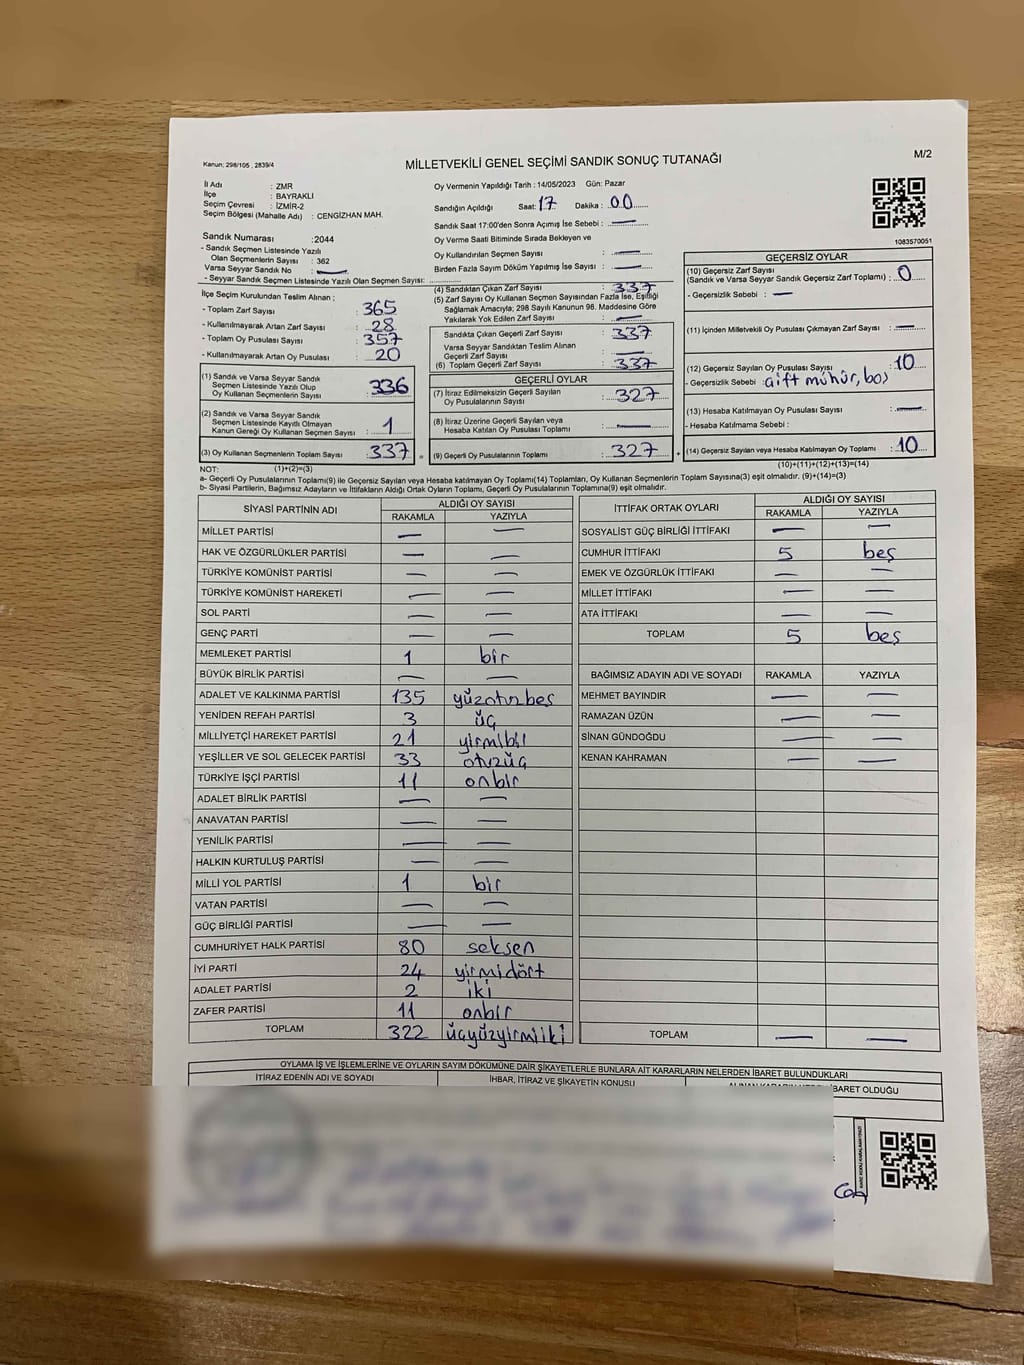 Kanun; 298/105 , 2839/4
MİLLETVEKİLİ GENEL SEÇİMİ SANDIK SONUÇ TUTANAĞI
M/2
İl Adı : ZMR
İlçe : BAYRAKLI
Seçim Çevresi : İZMİR-2
Seçim Bölgesi (Mahalle Adı) : CENGİZHAN MAH.
Sandık Numarası :2044
- Sandık Seçmen Listesinde Yazılı
Olan Seçmenlerin Sayısı : 362
Varsa Seyyar Sandık No : —
- Seyyar Sandık Seçmen Listesinde Yazılı Olan Seçmen Sayısı:
İlçe Seçim Kurulundan Teslim Alınan ;
- Toplam Zarf Sayısı : 365
- Kullanılmayarak Artan Zarf Sayısı : 28
- Toplam Oy Pusulası Sayısı : 357
- Kullanılmayarak Artan Oy Pusulası : 20
(1) Sandık ve Varsa Seyyar Sandık
Seçmen Listesinde Yazılı Olup
Oy Kullanan Seçmenlerin Sayısı : 336
(2) Sandık ve Varsa Seyyar Sandık
Seçmen Listesinde Kayıtlı Olmayan
Kanun Gereği Oy Kullanan Seçmen Sayısı : 1
(3) Oy Kullanan Seçmenlerin Toplam Sayısı : 337
Oy Vermenin Yapıldığı Tarih : 14/05/2023 Gün: Pazar
Sandığın Açıldığı Saat: 17 Dakika : 00
Sandık Saat 17:00'den Sonra Açımış İse Sebebi : —
Oy Verme Saati Bitiminde Sırada Bekleyen ve
Oy Kullandırılan Seçmen Sayısı : —
Birden Fazla Sayım Döküm Yapılmış İse Sayısı : —
(4) Sandıktan Çıkan Zarf Sayısı : 337
(5) Zarf Sayısı Oy Kullanan Seçmen Sayısından Fazla İse, Eşitliği
Sağlamak Amacıyla; 298 Sayılı Kanunun 98. Maddesine Göre
Yakılarak Yok Edilen Zarf Sayısı : —
Sandıkta Çıkan Geçerli Zarf Sayısı : 337
Varsa Seyyar Sandıktan Teslim Alınan
Geçerli Zarf Sayısı : —
(6) Toplam Geçerli Zarf Sayısı : 337
GEÇERLİ OYLAR
(7) İtiraz Edilmeksizin Geçerli Sayılan
Oy Pusulalarının Sayısı : 327
(8) İtiraz Üzerine Geçerli Sayılan veya
Hesaba Katılan Oy Pusulası Toplamı : —
(9) Geçerli Oy Pusulalarının Toplamı : 327
1083570051
GEÇERSİZ OYLAR
(10) Geçersiz Zarf Sayısı
(Sandık ve Varsa Seyyar Sandık Geçersiz Zarf Toplamı) : 0
- Geçersizlik Sebebi : —
(11) İçinden Milletvekili Oy Pusulası Çıkmayan Zarf Sayısı : —
(12) Geçersiz Sayılan Oy Pusulası Sayısı : 10
- Geçersizlik Sebebi : çift mühür, boş
(13) Hesaba Katılmayan Oy Pusulası Sayısı : —
- Hesaba Katılmama Sebebi :
(14) Geçersiz Sayılan veya Hesaba Katılmayan Oy Toplamı : 10
NOT: (1)+(2)=(3) (10)+(11)+(12)+(13)=(14)
a- Geçerli Oy Pusulalarının Toplamı(9) ile Geçersiz Sayılan veya Hesaba katılmayan Oy Toplamı(14) Toplamları, Oy Kullanan Seçmenlerin Toplam Sayısına(3) eşit olmalıdır. (9)+(14)=(3)
b- Siyasi Partilerin, Bağımsız Adayların ve İttifakların Aldığı Ortak Oyların Toplamı, Geçerli Oy Pusulalarının Toplamına(9) eşit olmalıdır.
SİYASİ PARTİNİN ADI ALDIĞI OY SAYISI
RAKAMLA YAZIYLA
MİLLET PARTİSİ — —
HAK VE ÖZGÜRLÜKLER PARTİSİ — —
TÜRKİYE KOMÜNİST PARTİSİ — —
TÜRKİYE KOMÜNİST HAREKETİ — —
SOL PARTİ — —
GENÇ PARTİ — —
MEMLEKET PARTİSİ 1 bir
BÜYÜK BİRLİK PARTİSİ — —
ADALET VE KALKINMA PARTİSİ 135 yüzotuzbeş
YENİDEN REFAH PARTİSİ 3 üç
MİLLİYETÇİ HAREKET PARTİSİ 21 yirmibir
YEŞİLLER VE SOL GELECEK PARTİSİ 33 otuzüç
TÜRKİYE İŞÇİ PARTİSİ 11 onbir
ADALET BİRLİK PARTİSİ — —
ANAVATAN PARTİSİ — —
YENİLİK PARTİSİ — —
HALKIN KURTULUŞ PARTİSİ — —
MİLLİ YOL PARTİSİ 1 bir
VATAN PARTİSİ — —
GÜÇ BİRLİĞİ PARTİSİ — —
CUMHURİYET HALK PARTİSİ 80 seksen
İYİ PARTİ 24 yirmidört
ADALET PARTİSİ 2 iki
ZAFER PARTİSİ 11 onbir
TOPLAM 322 üçyüzyirmiiki
İTTİFAK ORTAK OYLARI ALDIĞI OY SAYISI
RAKAMLA YAZIYLA
SOSYALİST GÜÇ BİRLİĞİ İTTİFAKI — —
CUMHUR İTTİFAKI 5 beş
EMEK VE ÖZGÜRLÜK İTTİFAKI — —
MİLLET İTTİFAKI — —
ATA İTTİFAKI — —
TOPLAM 5 beş
BAĞIMSIZ ADAYIN ADI VE SOYADI RAKAMLA YAZIYLA
MEHMET BAYINDIR — —
RAMAZAN ÜZÜN — —
SİNAN GÜNDOĞDU — —
KENAN KAHRAMAN — —
TOPLAM — —
OYLAMA İŞ VE İŞLEMLERİNE VE OYLARIN SAYIM DÖKÜMÜNE DAİR ŞİKAYETLERLE BUNLARA AİT KARARLARIN NELERDEN İBARET BULUNDUKLARI
İTİRAZ EDENİN ADI VE SOYADI İHBAR, İTİRAZ VE ŞİKAYETİN KONUSU BARET OLDUĞU